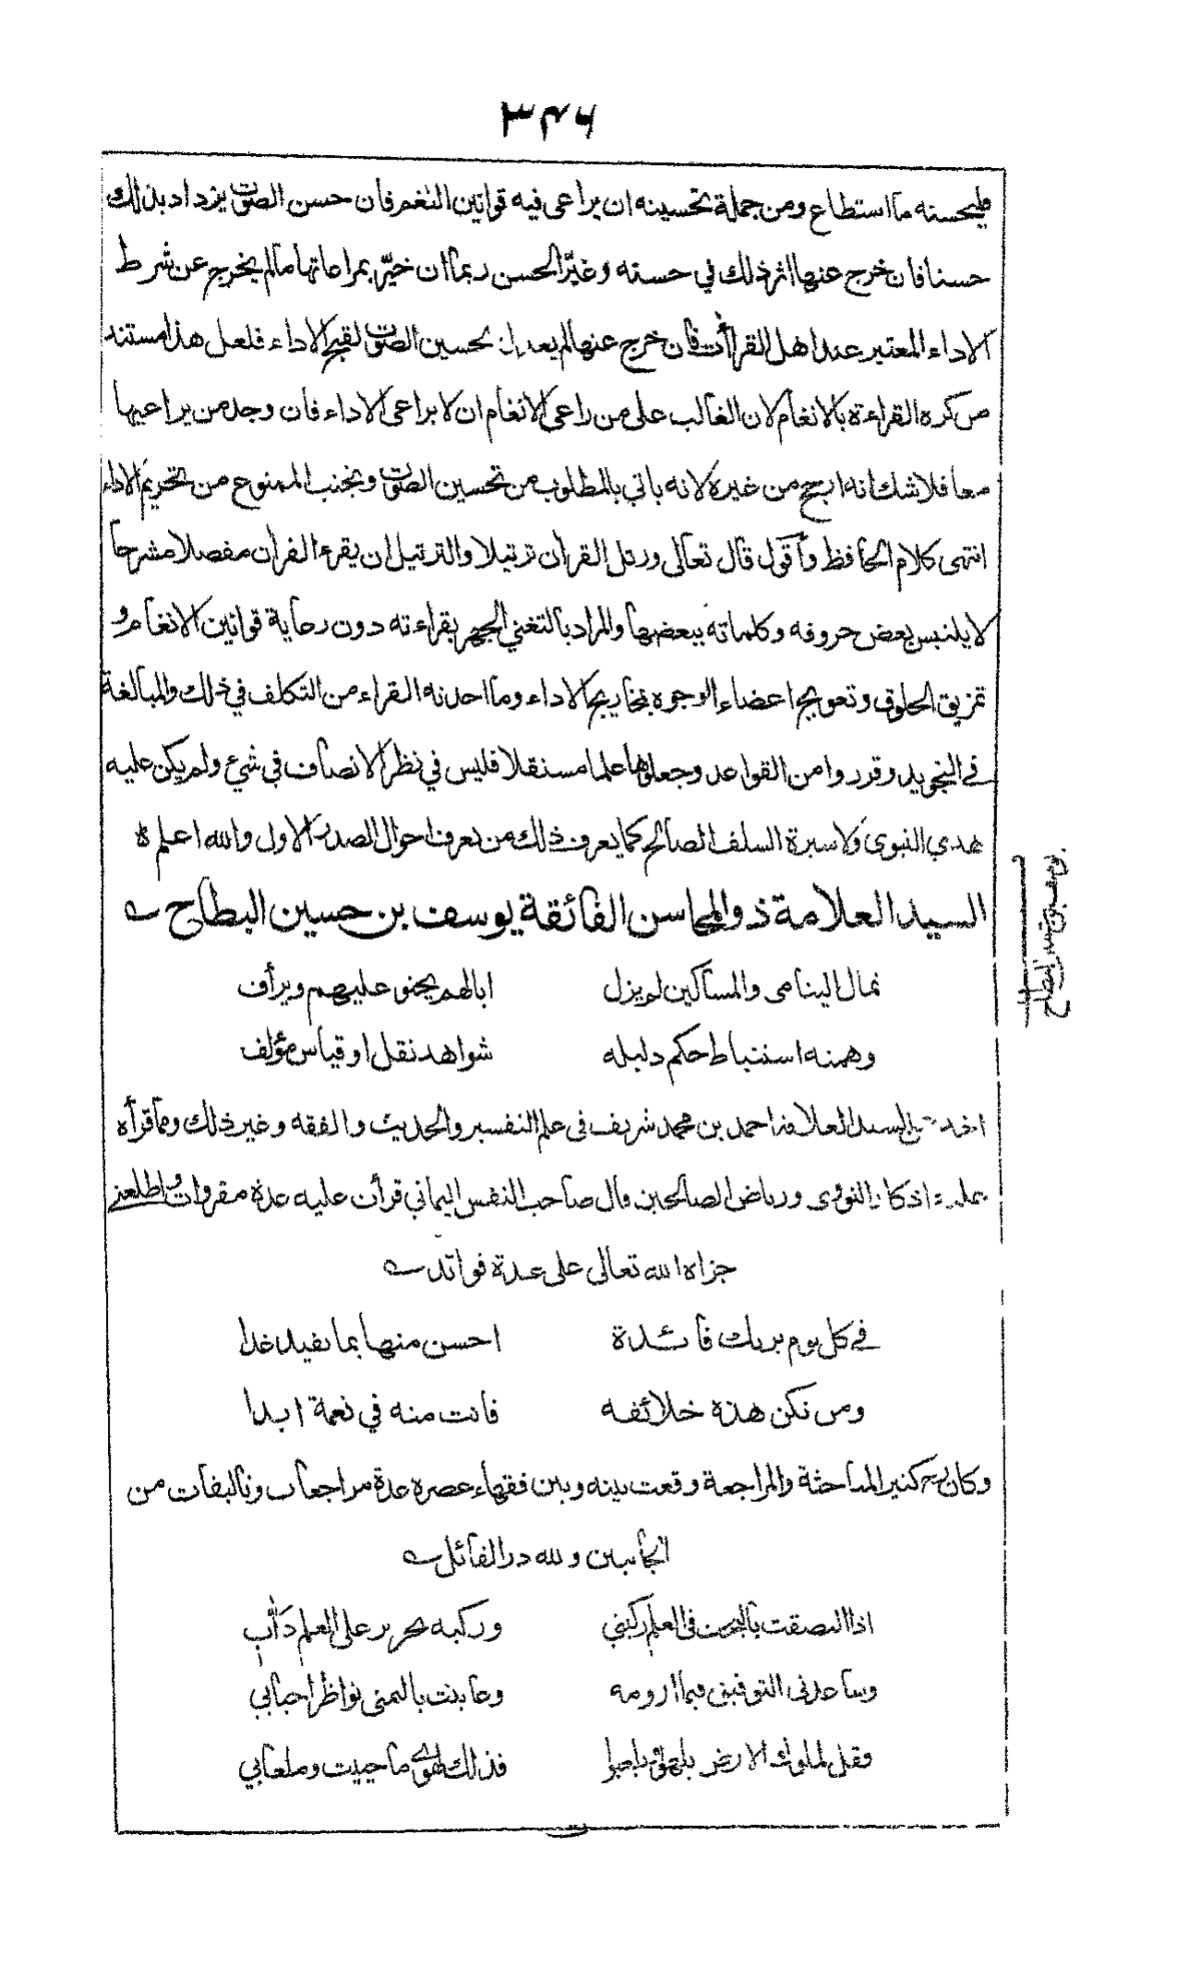 ٣٤٦
فليحسنه ما استطاع ومن جملة تحسينه ان يراعى فيه قوانين النغم فان حسن الصوت يزداد بذلك
حسنا فان خرج عنها اثر ذلك في حسنه وغير الحسن ربما ان خيّر بمراعاتها مالم يخرج عن شرط
الاداء المعتبر عند اهل القراآت فان خرج عنها لم يعد تحسين الصوت لقبح الاداء فلعل هذا مستند
من كره القراءة بالانغام لان الغالب على من راعى الانغام ان لا يراعى الاداء فان وجد من يراعيها
معا فلا شك انه ارجح من غيره لانه ياتي بالمطلوب من تحسين الصوت ويجتنب الممنوع من تحريم الاداء
انتهى كلام الحافظ وأقول قال تعالى ورتل القرأن ترتيلا والترتيل ان يقرء القرأن مفصلا مشرحا
لا يلتبس بعض حروفه وكلماته ببعضها والمراد بالتغني الجهر بقراءته دون رعاية قوانين الانغام و
تمزيق الحلوق وتعويج اعضاء الوجوه بمخاريج الاداء وما احدثه القراء من التكلف في ذلك والمبالغة
في التجويد وقرروا من القواعد وجعلوها علما مستقلا فليس في نظر الانصاف في شئ ولم يكن عليه
هدي النبوي ولا سيرة السلف الصالح كما يعرف ذلك من يعرف احوال الصدر الاول والله اعلم ه
السيد العلامة ذو المحاسن الفائقة يوسف بن حسين البطاح
ثمال اليتامى والمساكين لم يزل ابا لهم يحنو عليهم ويرأف
وهمته استنباط حكم دليله شواهد نقل او قياس مؤلف
اخذ السيد العلامة احمد بن محمد شريف في علم التفسير والحديث والفقه وغير ذلك ومما قرأه
عليه اذكار النووي ورياض الصالحين وقال صاحب النفس اليماني قرأت عليه عدة مقروات واطلعني
جزاه الله تعالى على عدة فوائد
في كل يوم يريك فائدة احسن منها بما يفيد غدا
ومن تكن هذه خلائفه فانت منه في نعمة ابدا
وكان كثير المباحثة والمراجعة وقعت بينه وبين فقهاء عصره عدة مراجعات وتاليفات من
الجانبين ولله در القائل
اذا التصقت بالبحث في العلم ركبتي وركبة نحرير على العلم دأاب
وساعدني التوفيق فيما ارومه وعاينت بالتمنى نواظر احبابي
وقل لملوك الارض فذلك لهوي ما حييت وملعابي